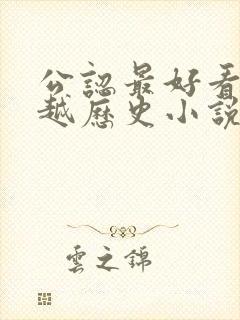 公認最好看
越歷史小說
雲之錦